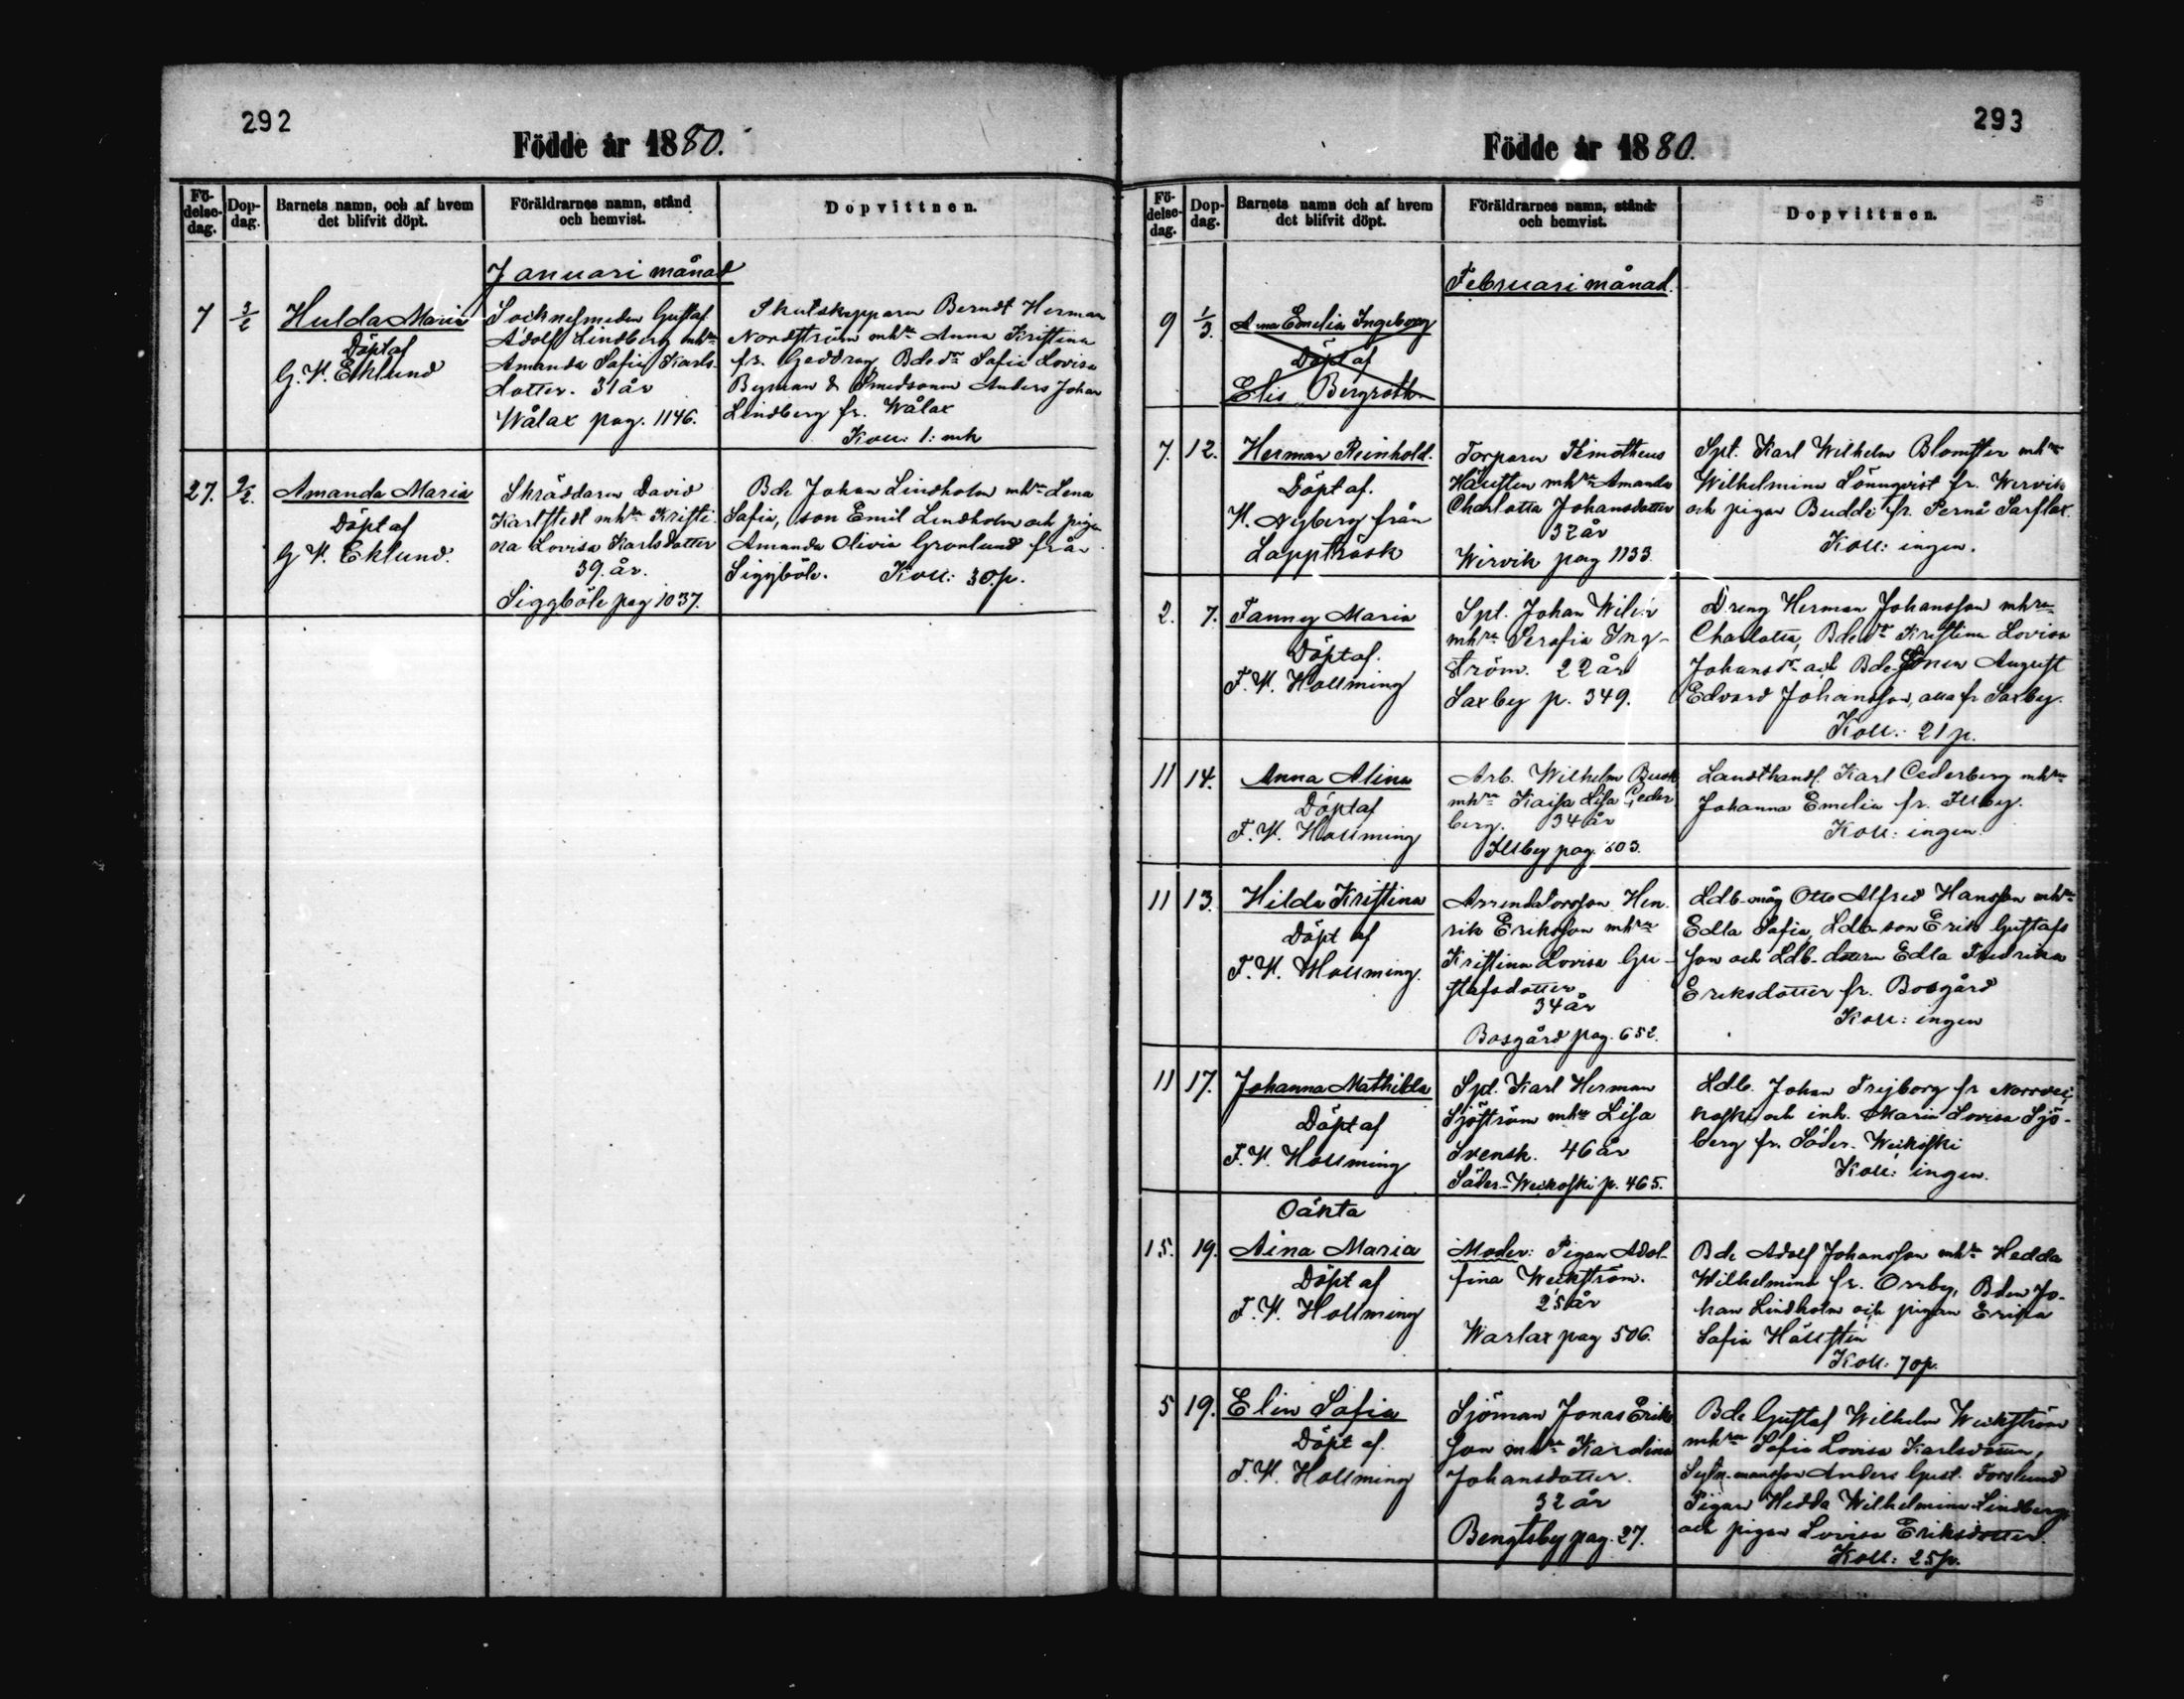 292
Födde år 1880.
Fö-
delse-
dag.
Dop-
dag.
Barnets namn, och af hvem
det blifvit döpt.
Föräldrarnes namn, stånd
och hemvist.
Dopvittnen.
Januari månad
7
3/2
Hulda Maria
Döpt af
G. V. Eklund
Socknesmeden Gustaf
Adolf Lindberg mhra
Amanda Sofia Karls-
dotter. 31 år
Wålax pag. 1146.
Skutskepparen Berndt Herman
Nordström mhra Anna Kristina
fr. Geddrag, Bdedr Sofia Lovisa
Byman & Smedsonen Anders Johan
Lindberg fr. Wålax
Koll: 1: mk
27.
9/2.
Amanda Maria
Döpt af
G V. Eklund.
Skräddaren David
Karlstedt mhra Kristi-
na Lovisa Karlsdotter
39. år.
Siggböle pag 1037.
Bde Johan Lindholm mhra Lena
Sofia, son Emil Lindholm och pigan
Amanda Olivia Gronlund från
Siggböle. Koll: 30p.
293
Födde år 1880.
Fö-
delse-
dag.
Dop-
dag.
Barnets namn och af hvem
det blifvit döpt.
Föräldrarnes namn, stånd
och hemvist.
Dopvittnen.
Februari månad.
9
1/3.
Anna Emelia Ingeborg
Döpt af
Elis Bergroth
7.
12.
Herman Reinhold.
Döpt af.
V. Nyberg från
Lappträsk
Torparen Timotheus
Hällsten mhra Amanda
Charlotta Johansdotter
32 år
Wervik pag 1133.
Spt. Karl Wilhelm Blomster mhra
Wilhelmina Lönnqvist fr. Wervik
och pigan Budde fr. Pernå Sarflax.
Koll: ingen.
2.
7.
Fanny Maria
Döpt af.
F. V. Hollming
Spt. Johan Wilén
mhra Serafia Eng-
ström. 22 år
Saxby p. 349.
Dreng Herman Johansson mhra
Charlotta, Bdedr Kristina Lovisa
Johansdr och Bde-sonen August
Edvard Johansson, alla fr Saxby.
Koll: 21 p.
11
14.
Anna Alina
Döpt af
F. V. Hollming
Arb. Wilhelm Busk
mhra Kaisa Lisa Ceder-
berg. 34 år
Illby pag. 603.
Landthandl. Karl Cederberg mhra
Johanna Emelia fr. Illby.
Koll: ingen.
11
13.
Hilda Kristina
Döpt af
F. V. Hollming.
Arrendatorson Hen-
rik Eriksson mhra
Kristina Lovisa Gu-
stafsdotter
34 år
Bosgård pag. 652.
Ldb-måg Otto Alfred Hansson mhra
Edla Sofia, Ldb-son Erik Gustafs
son och Ldb-dotren Edla Fredrika
Eriksdotter fr. Bosgård
Koll: ingen
11
17.
Johanna Mathilda
Döpt af
F. V. Hollming
Spt. Karl Herman
Sjöström mhra Lisa
Svensk. 46 år
Söder-Weckoski p. 465.
Ldb. Johan Frejborg fr Norrvec-
koski och inh. Maria Lovisa Sjö-
berg fr. Söder-Weckoski
Koll: ingen.
Oäkta
15.
19.
Aina Maria
Döpt af
F. V. Hollming
Moder: Pigan Adol-
fina Weckström.
25 år
Warlax pag 506.
Bde Adolf Johansson mhra Hedda
Wilhelmina fr. Orrby, Bden Jo-
han Lindholm och pigan Erika
Sofia Hällsten
Koll: 70p.
5
19.
Elin Sofia
Döpt af.
F. V. Hollming
Sjöman Jonas Eriks
son mhra Karolina
Johansdotter.
32 år
Bengtsby pag. 27.
Bde Gustaf Wilhelm Weckström
mhra Sofia Lovisa Karlsdotter,
Anders Gust. Forslund
Pigan Hedda Wilhelmina Lindberg
och pigan Lovisa Eriksdotter.
Koll: 25p.